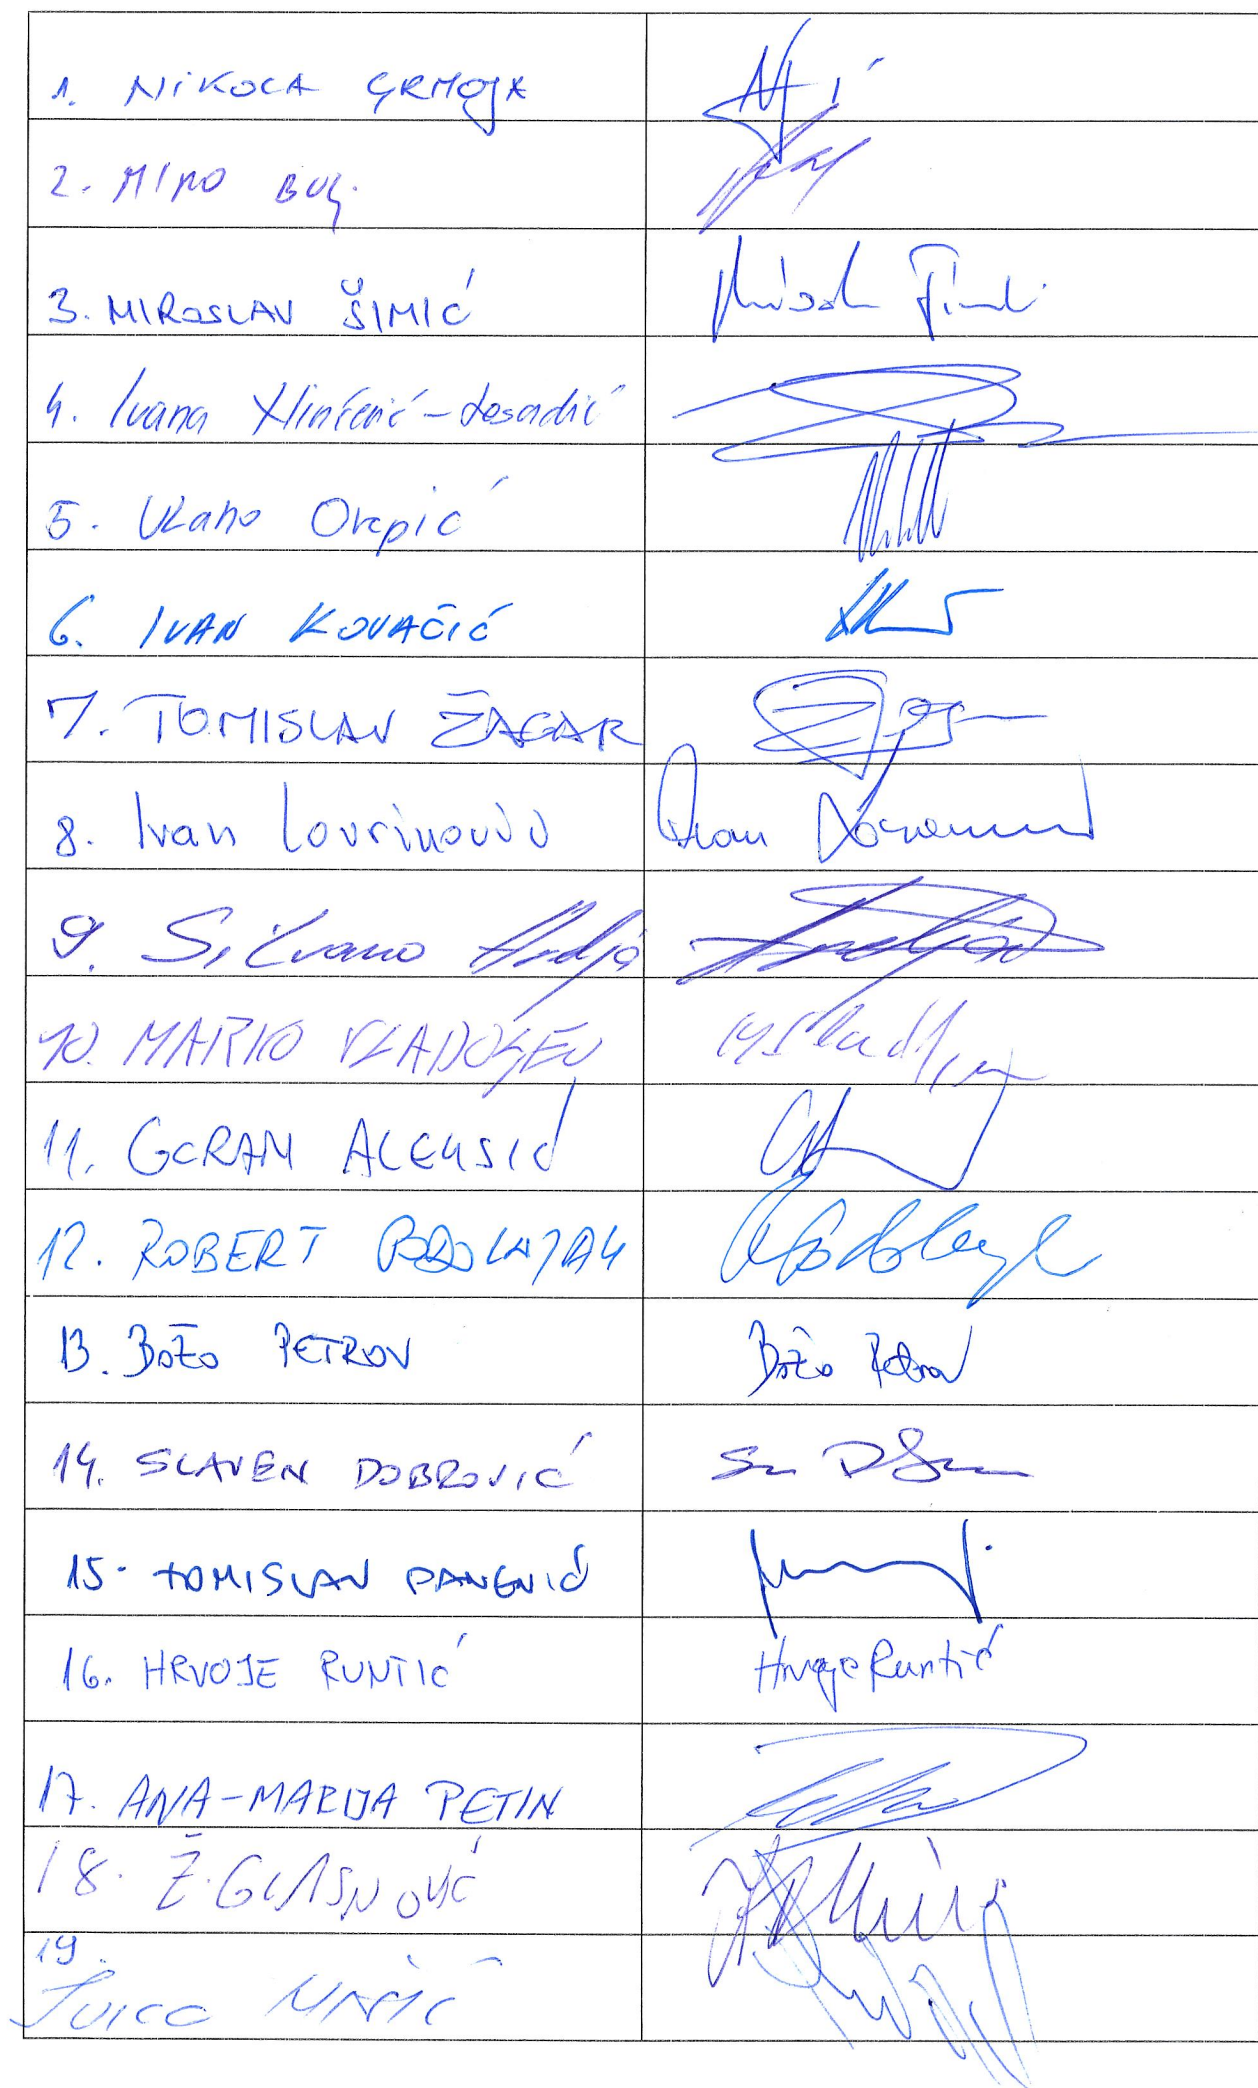 1. NIKOLA GRMOJA
2. MIRO BULJ
3. MIROSLAV ŠIMIĆ
Miroslav Šimić
4. Ivana Ninčević-Lesandrić
5. Vlaho Orepić
6. IVAN KOVAČIĆ
7. TOMISLAV ŽAGAR
8. Ivan Lovrinović
Ivan Lovrinović
9. Silvano Hrelja
10. MARKO VLADOLJEV
11. GORAN ALEKSIĆ
12. ROBERT PODOLNJAK
13. BOŽO PETROV
Božo Petrov
14. SLAVEN DOBROVIĆ
15. TOMISLAV PANENIĆ
16. HRVOJE RUNTIĆ
Hrvoje Runtić
17. ANA-MARIJA PETIN
18. Ž. GLASNOVIĆ
19.
Ivica MIŠIĆ